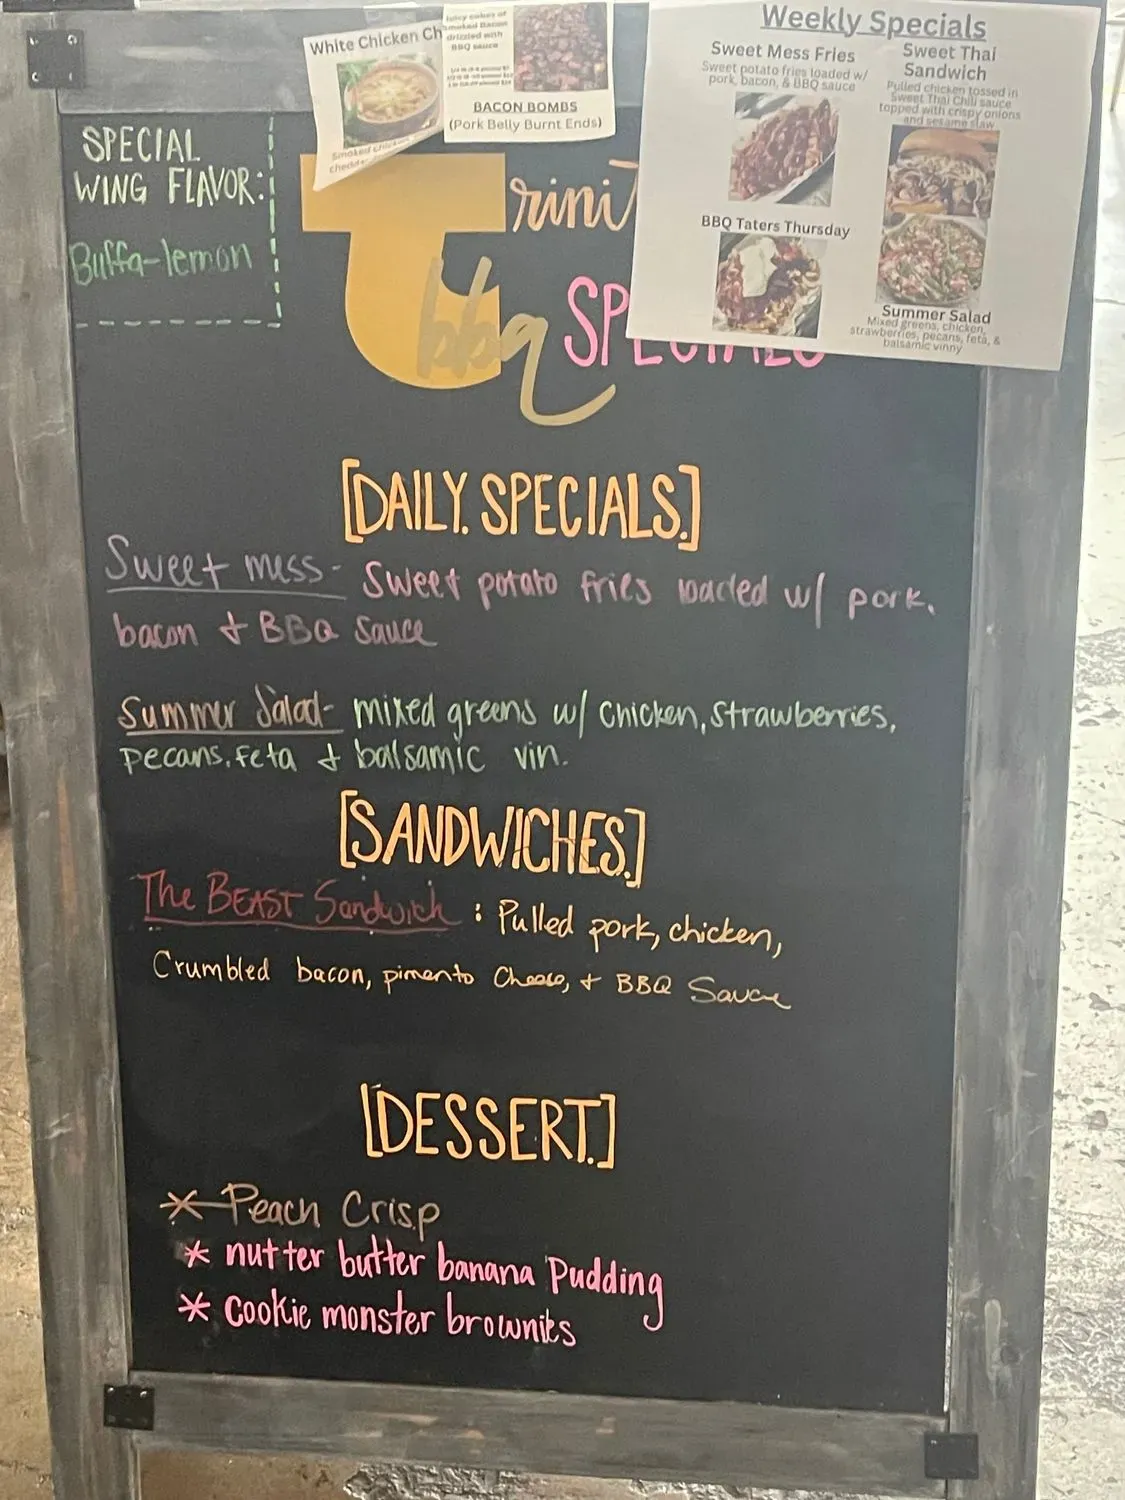 White Chicken Ch
Smoked chicken
Juicy cubes of
smoked Bacon
drizzled with
BBQ sauce
BACON BOMBS
(Pork Belly Burnt Ends)
Weekly Specials
Sweet Mess Fries
Sweet potato fries loaded w/
pork, bacon, & BBQ sauce
BBQ Taters Thursday
Sweet Thai
Sandwich
Pulled chicken tossed in
Sweet Thai Chili sauce
topped with crispy onions
and sesame slaw
Summer Salad
Mixed greens, chicken,
strawberries, pecans, feta, &
balsamic vinny
SPECIAL
WING FLAVOR:
Buffa-lemon
Trinit
bbq SPECIALS
[DAILY. SPECIALS.]
Sweet mess- Sweet potato fries loaded w/ pork,
bacon + BBQ Sauce
Summer Salad- mixed greens w/ chicken, strawberries,
pecans, feta + balsamic vin.
[SANDWICHES.]
The BEAST Sandwich : Pulled pork, chicken,
Crumbled bacon, pimento Cheese, + BBQ Sauce
[DESSERT.]
* Peach Crisp
* nutter butter banana Pudding
* cookie monster brownies